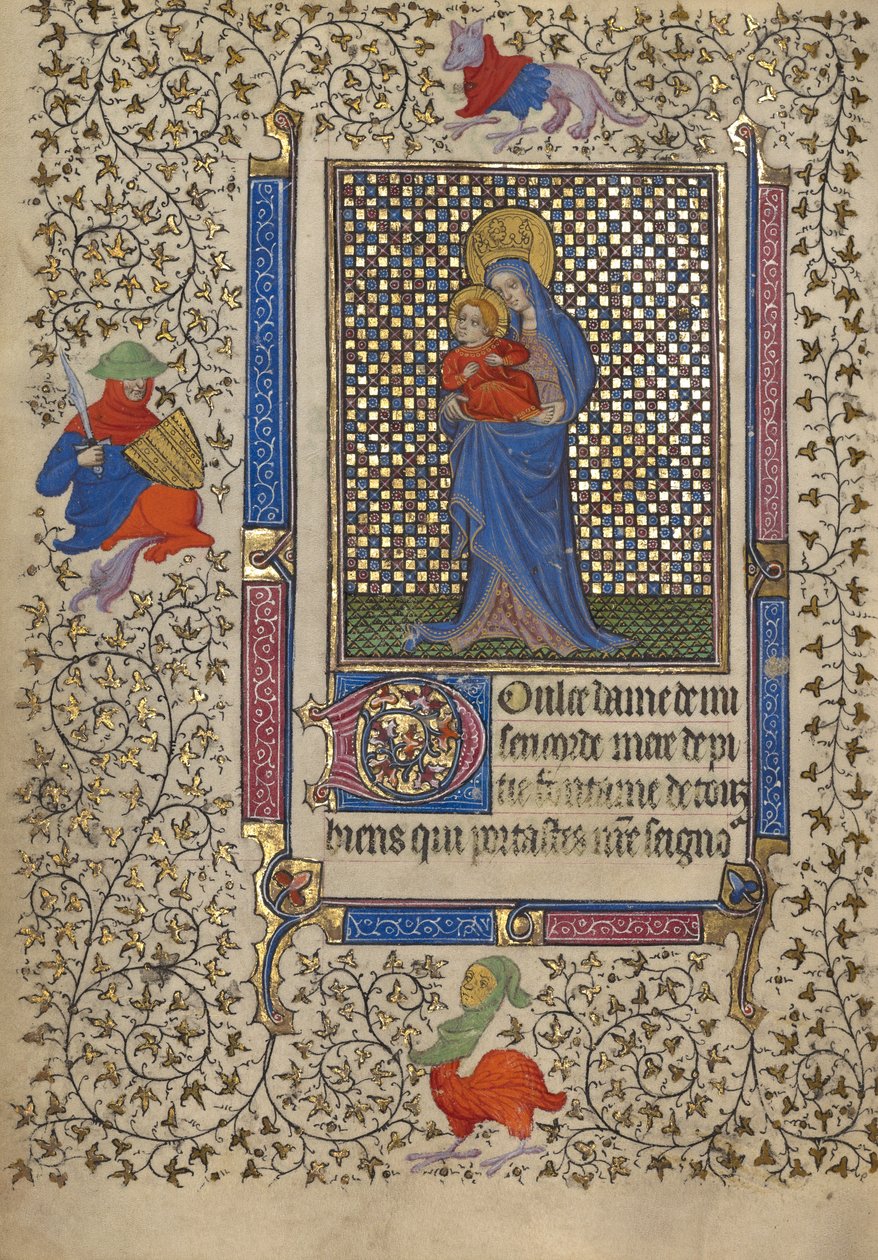 Doulce dame de mi
sericorde mere de pi
tie fontaine de touz
biens qui portastes nr̄e seigno^r